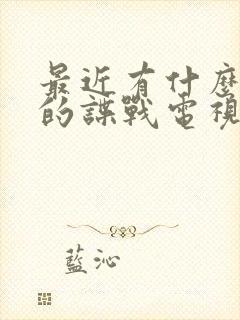 最近有什麼
的諜戰電視
藍沁